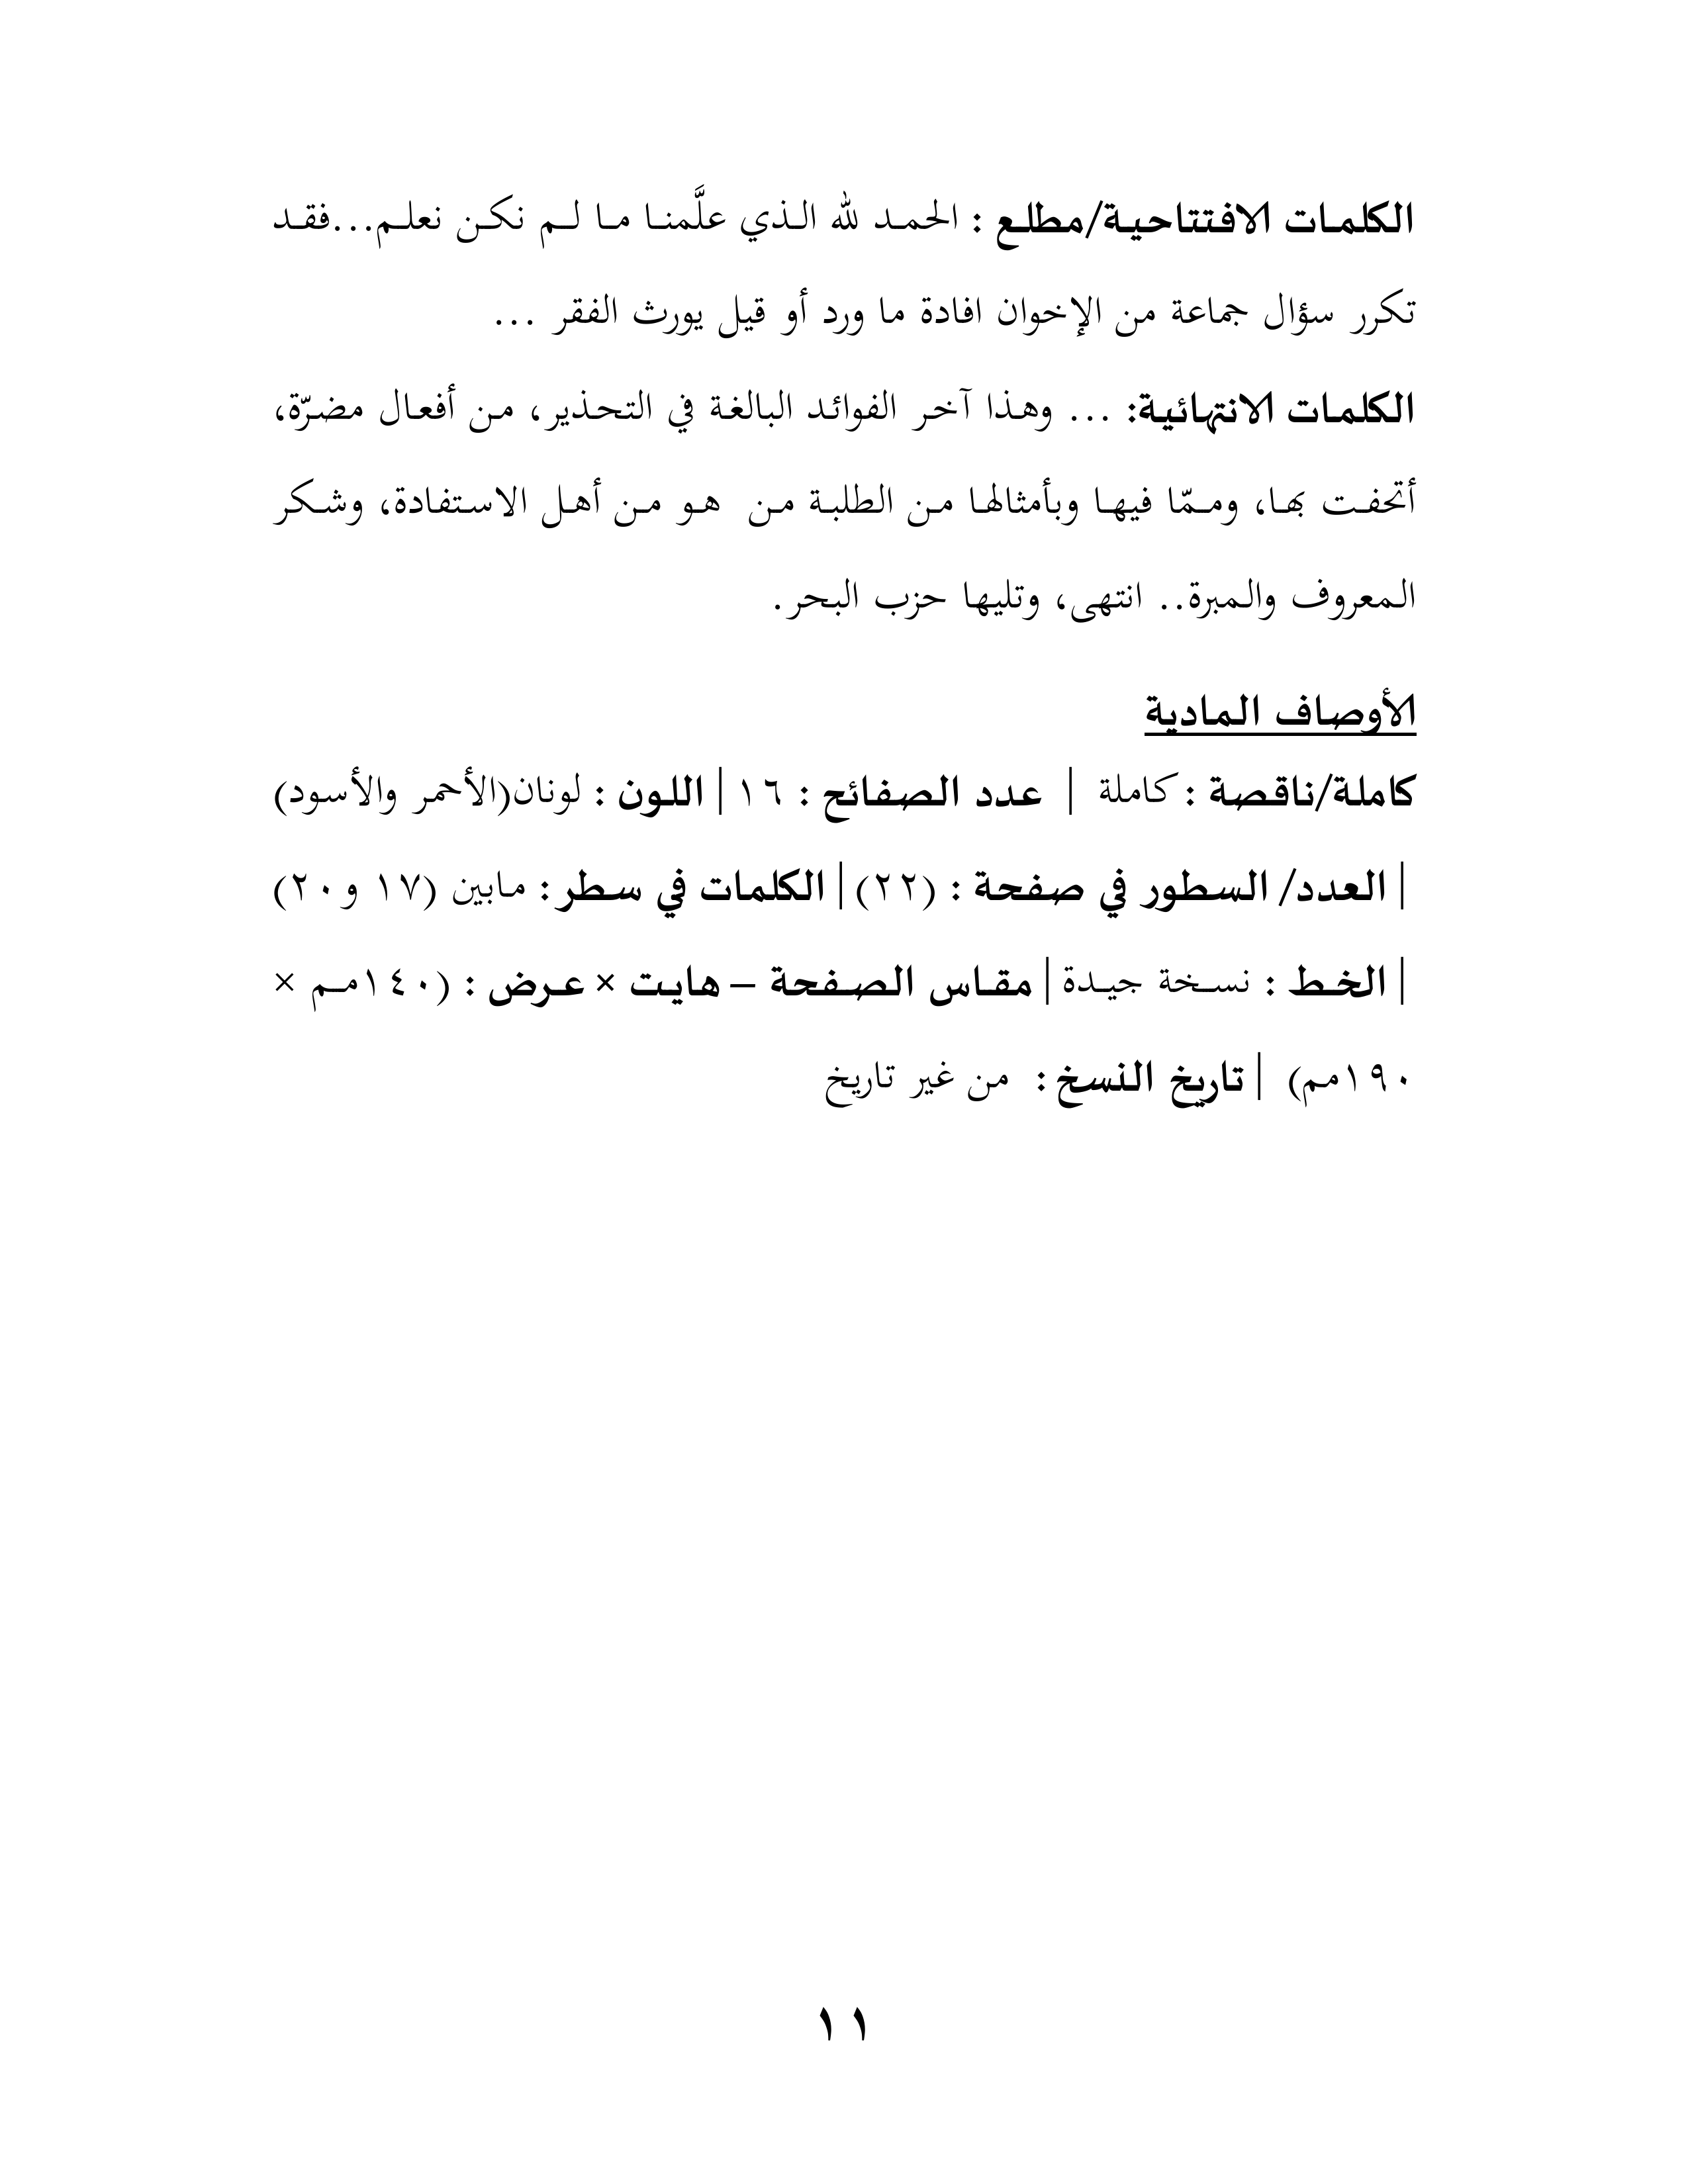 الكلمات الافتتاحية/مطلع : الحمد لله الذي علَّمنا ما لم نكن نعلم...فقد
تكرر سؤال جماعة من الإخوان افادة ما ورد أو قيل يورث الفقر ...
الكلمات الانتهائية: ... وهذا آخر الفوائد البالغة في التحذير، من أفعال مضرّة،
أتحفت بها، وممّا فيها وبأمثالها من الطلبة من هو من أهل الاستفادة، وشكر
المعروف والمبرة.. انتهى، وتليها حزب البحر.
الأوصاف المادية
كاملة/ناقصة : كاملة | عدد الصفائح : ١٦ | اللون : لونان(الأحمر والأسود)
| العدد/ السطور في صفحة : (٢٢) | الكلمات في سطر: مابين (١٧ و٢٠)
| الخط : نسخة جيدة | مقاس الصفحة – هايت × عرض : (١٤٠مم ×
١٩٠مم) | تاريخ النسخ : من غير تاريخ
١١